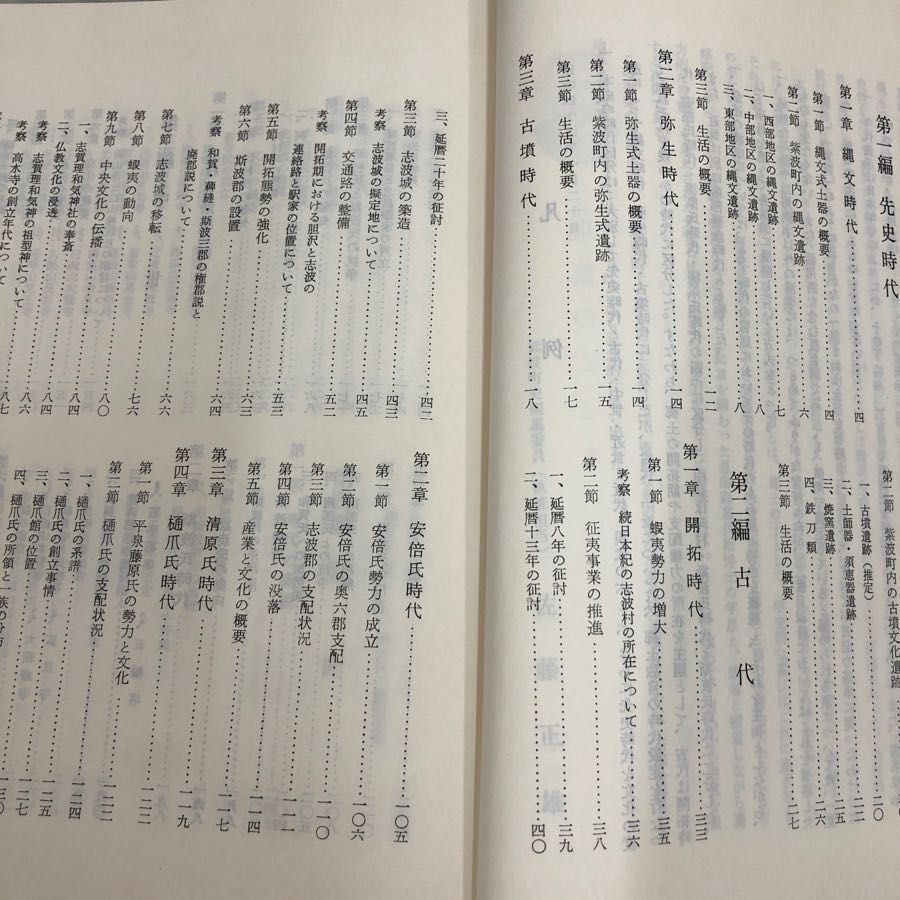 第一編　先史時代
第一章　縄文時代……四
第一節　縄文式土器の概要……四
第二節　紫波町内の縄文遺跡……六
一、西部地区の縄文遺跡……七
二、中部地区の縄文遺跡……八
三、東部地区の縄文遺跡……八
第三節　生活の概要……一二
第二章　弥生時代……一四
第一節　弥生式土器の概要……一四
第二節　紫波町内の弥生式遺跡……一五
第三節　生活の概要……一七
第三章　古墳時代……一八
第二節　紫波町内の古墳文化遺跡……二〇
一、古墳遺跡（推定）……二〇
二、土師器・須恵器遺跡……二二
三、焼窯遺跡……二六
四、鉄刀類……二六
第三節　生活の概要……二七
第二編　古代
第一章　開拓時代……三三
第一節　蝦夷勢力の増大……三五
考察　続日本紀の志波村の所在について……三六
第二節　征夷事業の推進……三八
一、延暦八年の征討……三九
二、延暦十三年の征討……四〇
三、延暦二十年の征討……四二
第三節　志波城の築造……四三
考察　志波城の擬定地について……四五
第四節　交通路の整備……五二
考察　開拓期における胆沢と志波の
連絡路と駅家の位置について……五三
第五節　開拓態勢の強化……
第六節　斯波郡の設置……六三
考察　和賀・薭縫・斯波三郡の権郡説と
廃郡説について……六四
第七節　志波城の移転……六六
第八節　蝦夷の動向……七六
第九節　中央文化の伝播……八〇
一、志賀理和気神社の奉斎……八四
二、仏教文化の浸透……八四
考察　志賀理和気神の祖型神について……八六
考察　高水寺の創立年代について……八七
第二章　安倍氏時代……一〇五
第一節　安倍氏勢力の成立……一〇六
第二節　安倍氏の奥六郡支配……一一〇
第三節　志波郡の支配状況……一一一
第四節　安倍氏の没落……一一四
第五節　産業と文化の概要……
第三章　清原氏時代……一一七
第四章　樋爪氏時代……一一九
第一節　平泉藤原氏の勢力と文化……一二二
第二節　樋爪氏の支配状況……一二二
一、樋爪氏の系譜……一二四
二、樋爪氏の創立事情……一二五
三、樋爪館の位置……一二七
四、樋爪氏の所領と一族の分布……一三〇